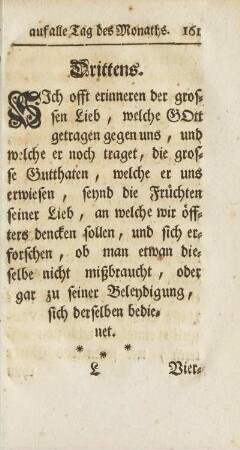 auf alle Tag des Monaths. 161
Drittens.
SIch offt erinneren der gros-
sen Lieb, welche GOtt
getragen gegen uns, und
welche er noch traget, die gros-
se Gutthaten, welche er uns
erwiesen, seynd die Früchten
seiner Lieb, an welche wir öff-
ters dencken sollen, und sich er-
forschen, ob man etwan die-
selbe nicht mißbraucht, oder
gar zu seiner Beleydigung,
sich derselben bedie-
net.
* * *
L Vier-